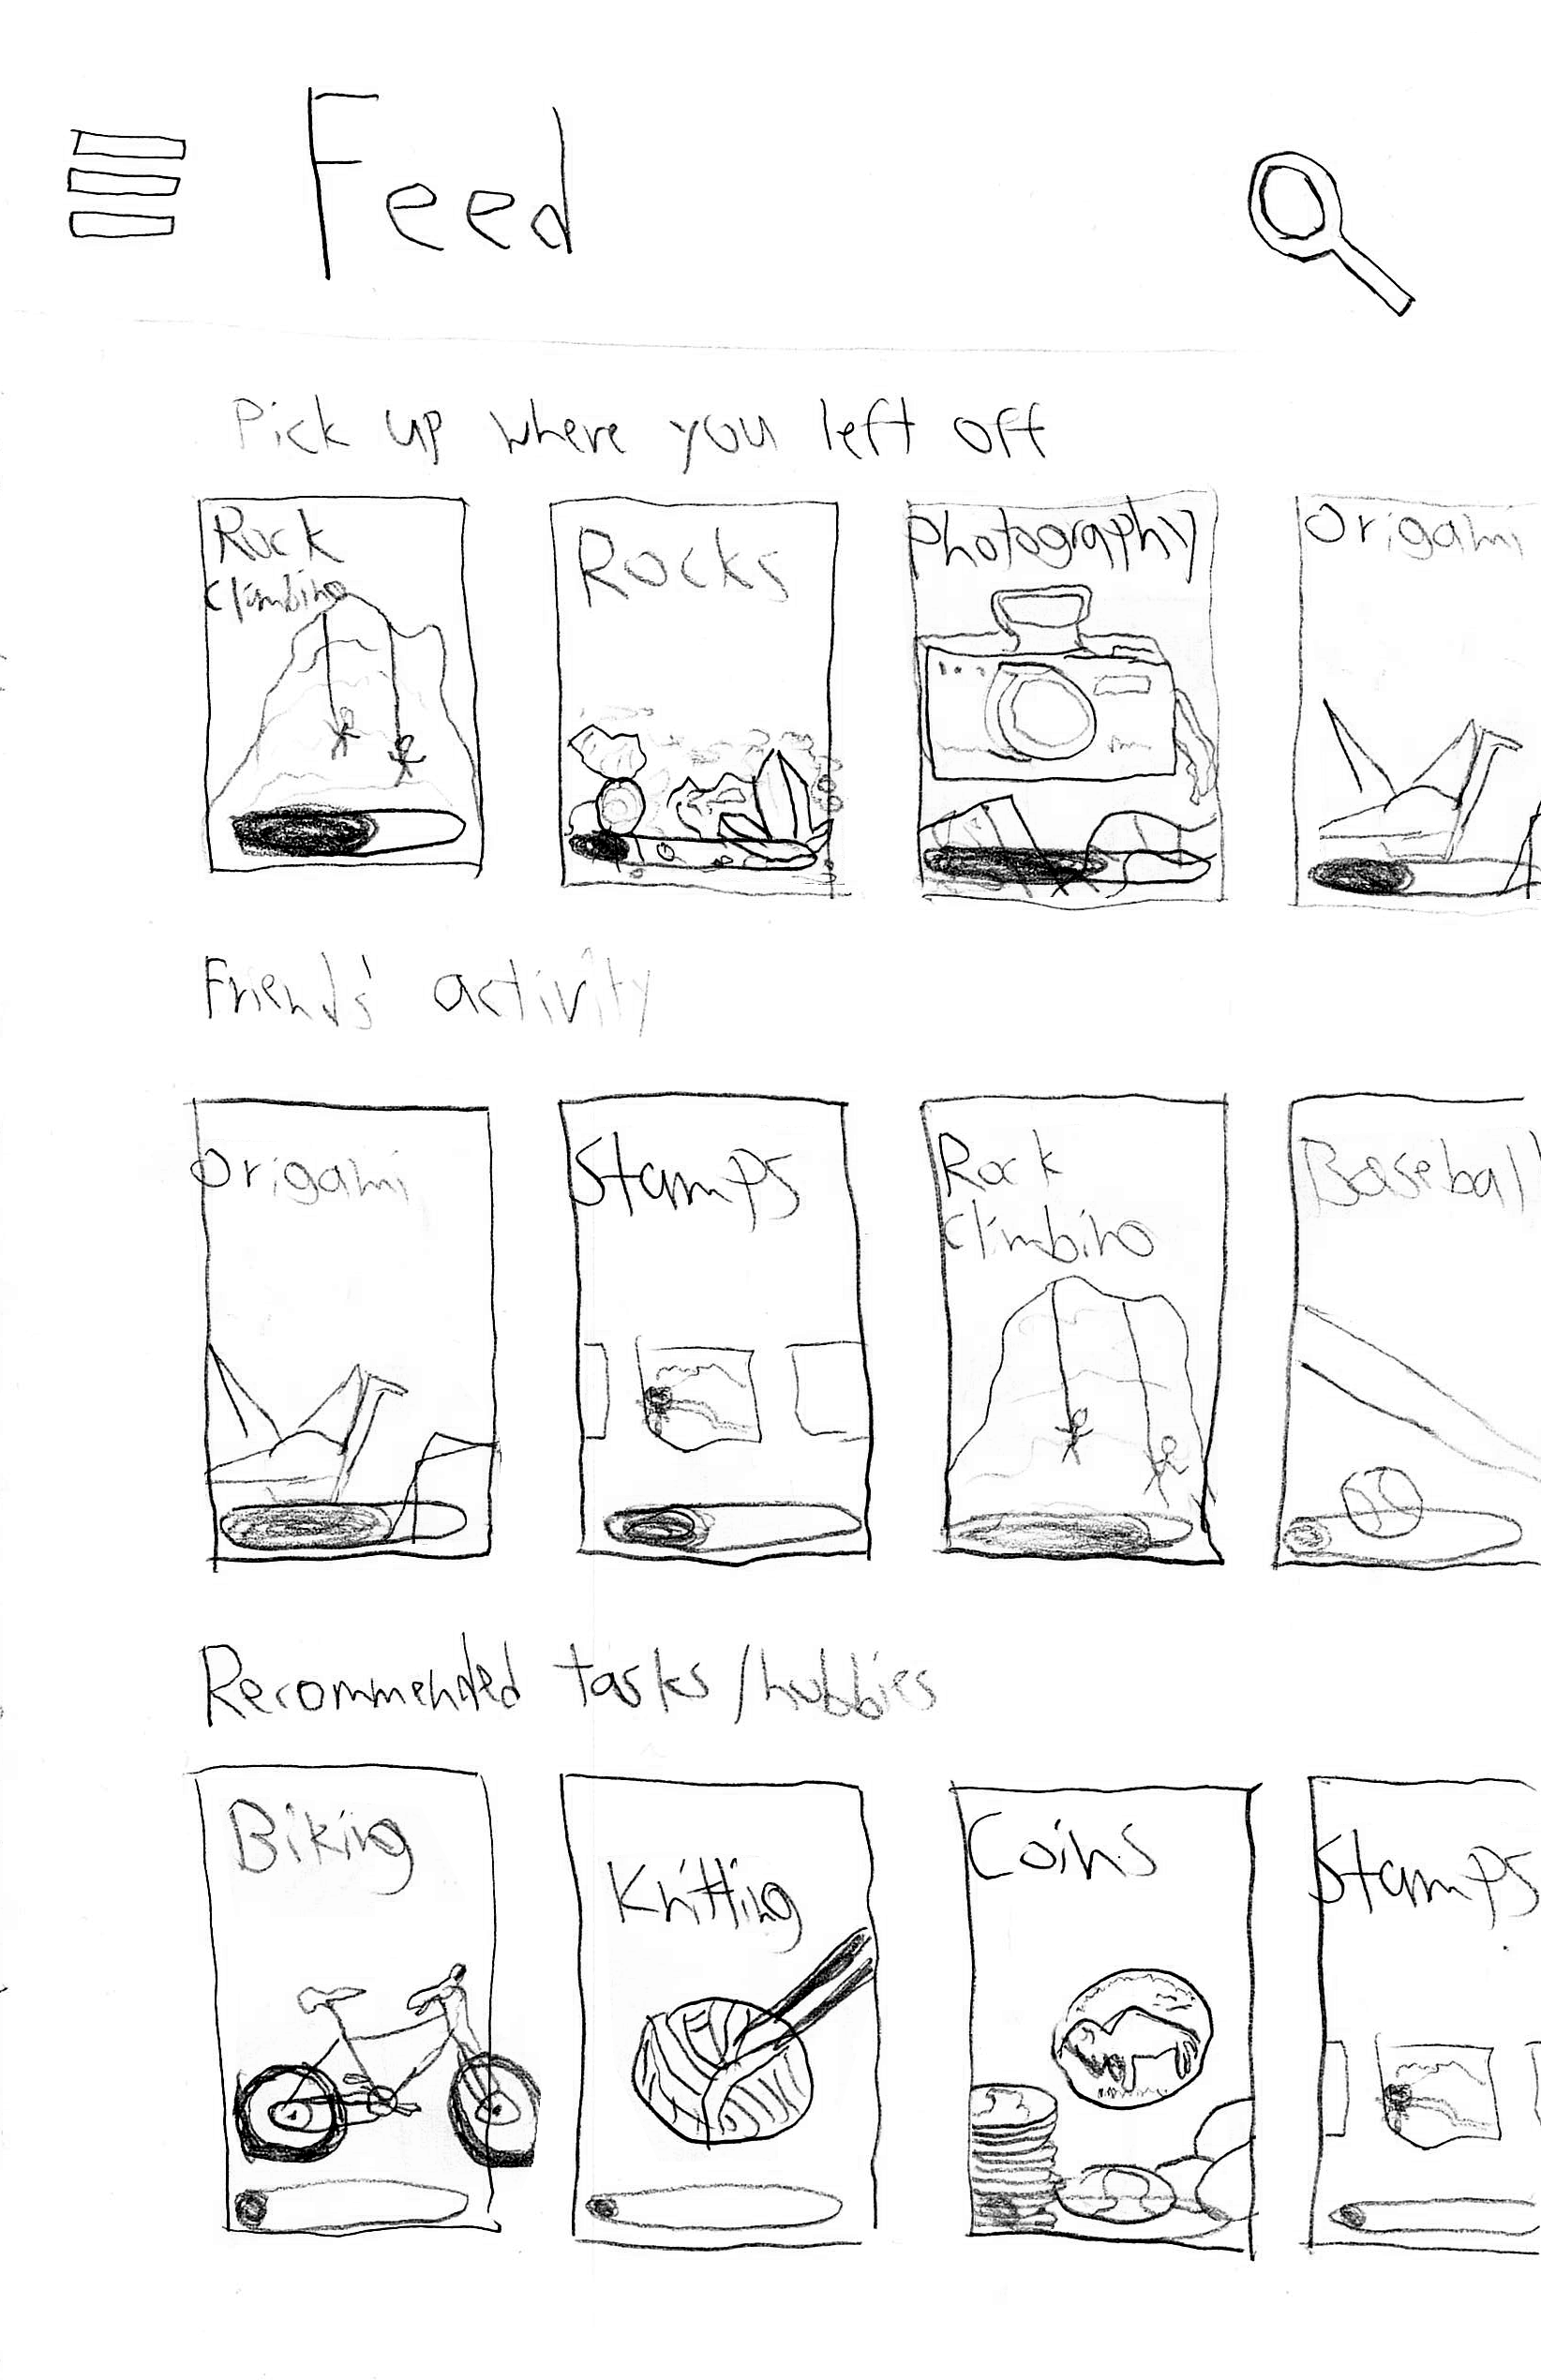 Feed
Pick up where you left off
Rock
Climbing
Rocks
Photography
Origami
Friends' activity
Origami
Stamps
Rock
Climbing
Baseball
Recommended tasks/hobbies
Biking
Knitting
Coins
Stamps